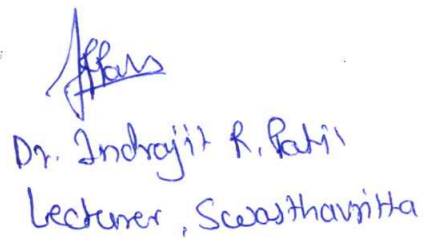 Dr. Indrajit R. Patil
Lecturer, Swasthavritta